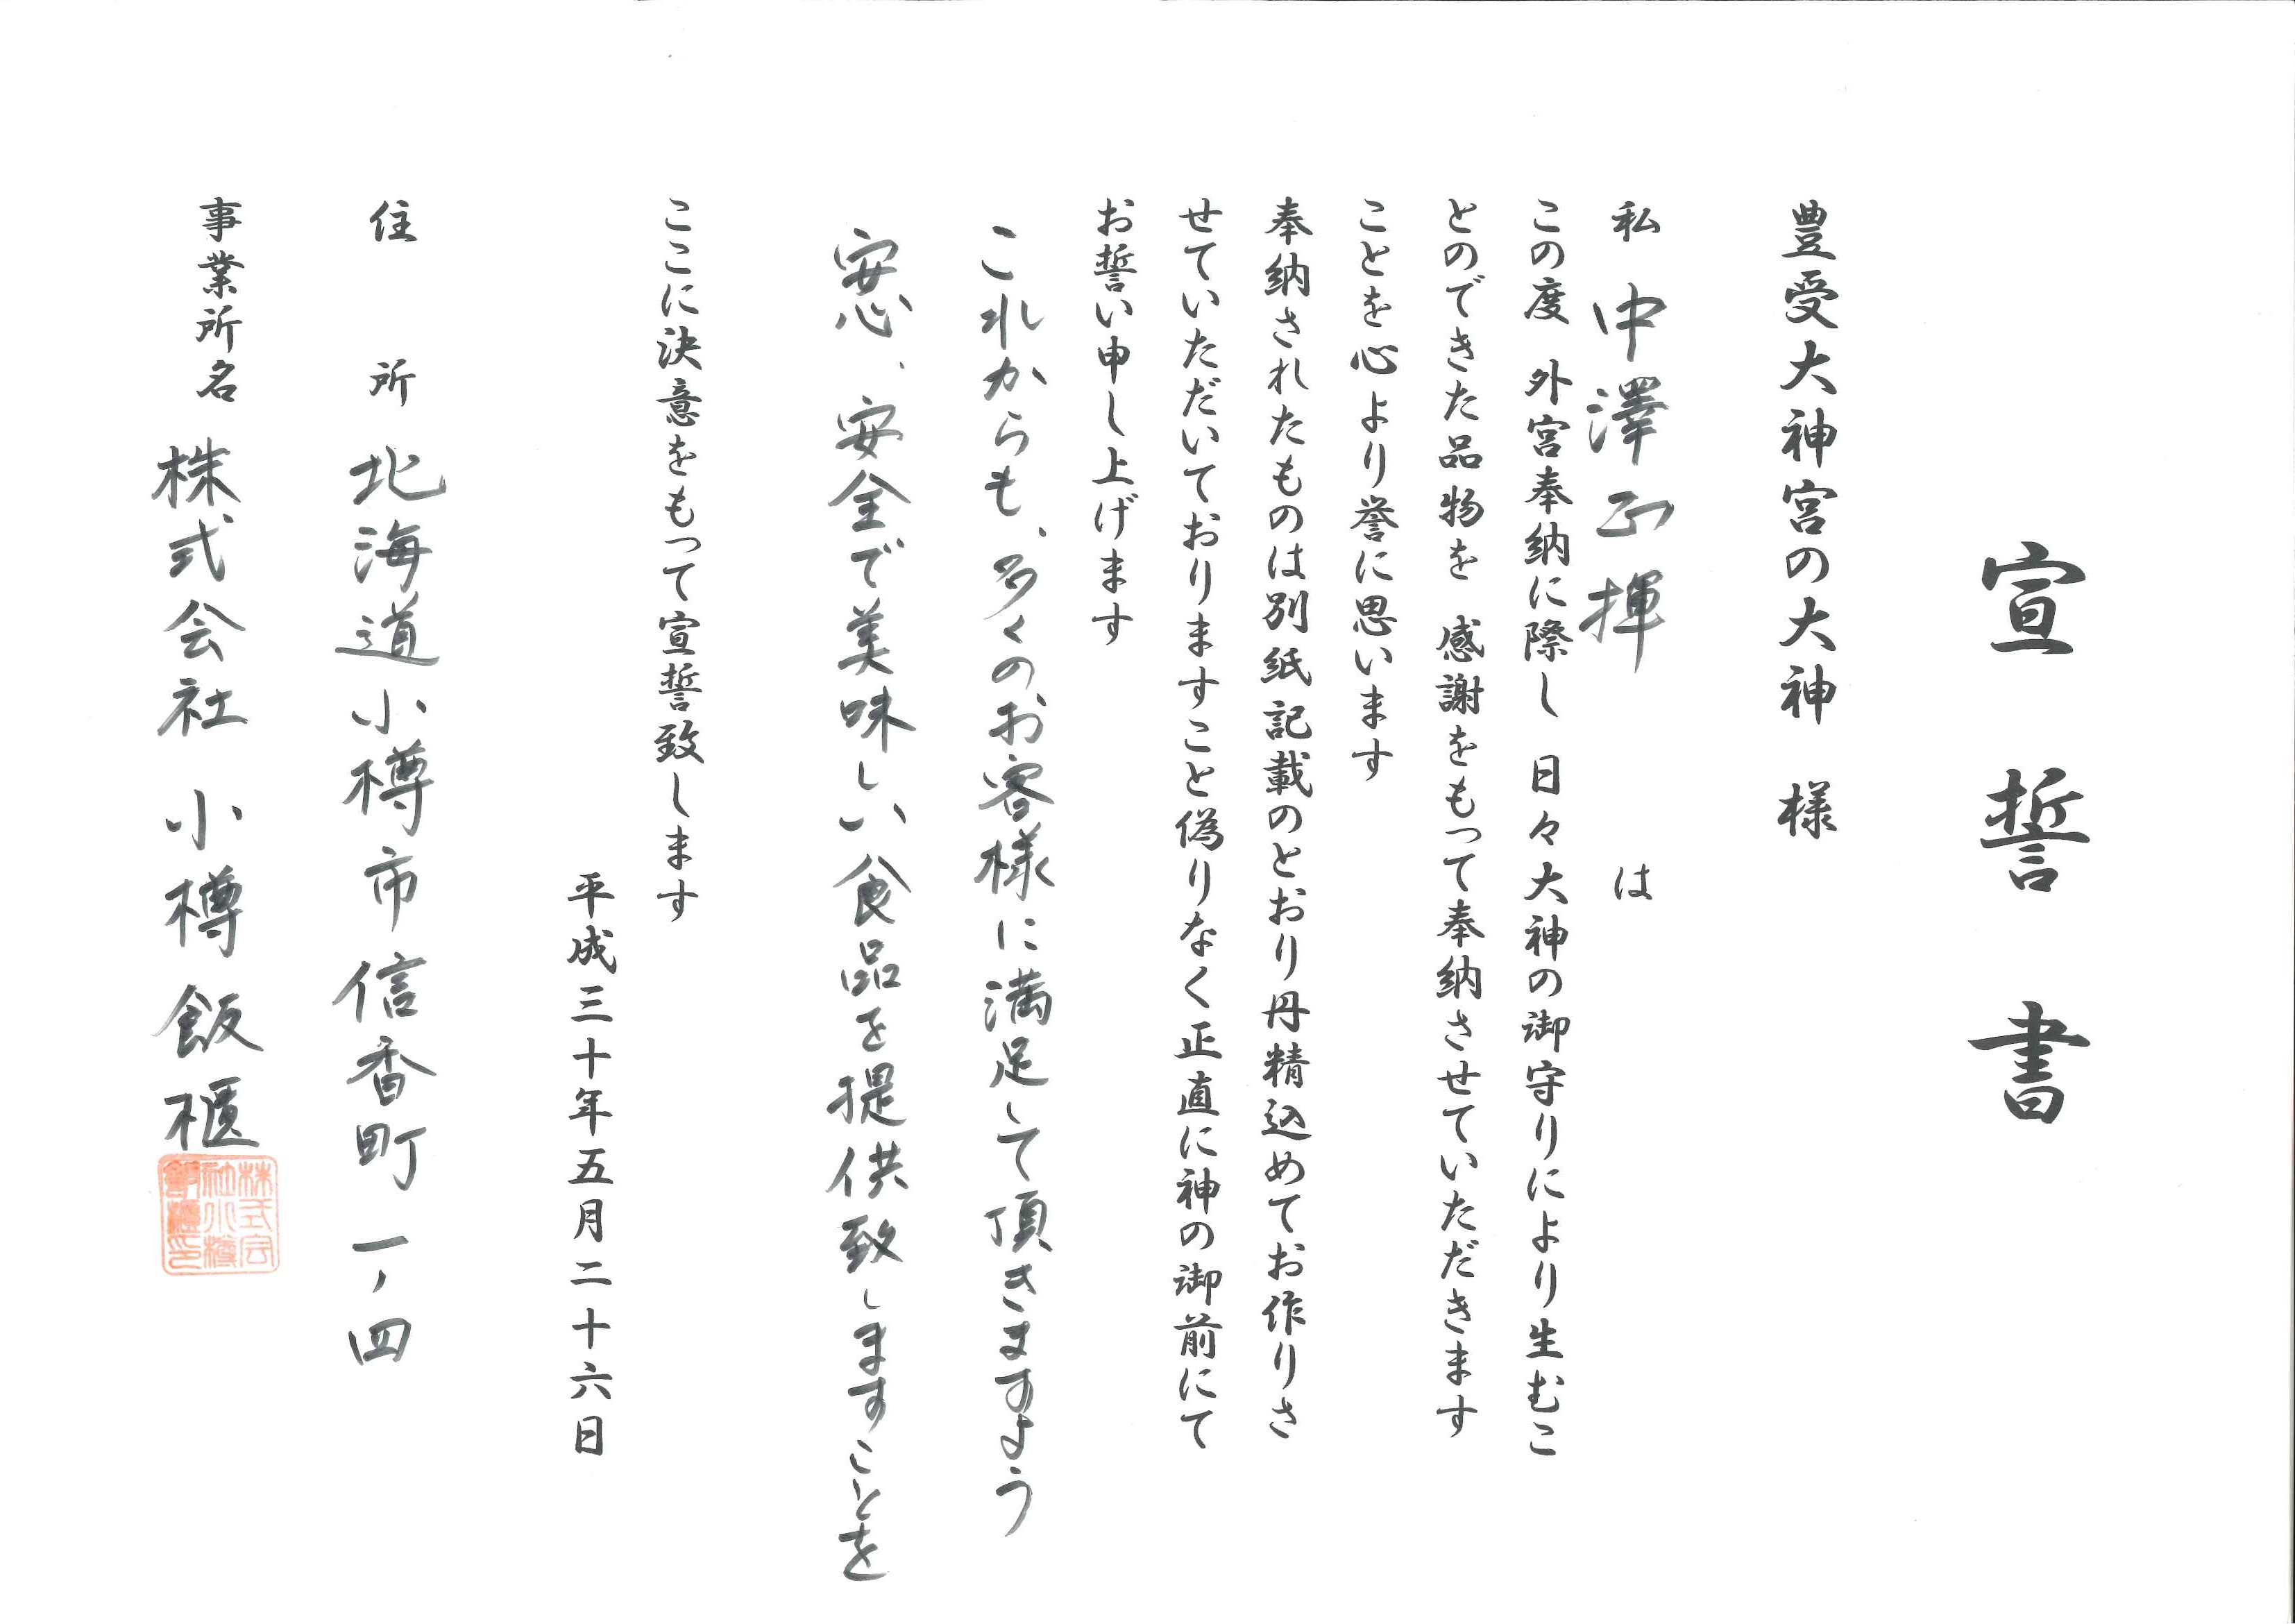 宣誓書
豊受大神宮の大神 様
私 中澤正揮 は
この度 外宮奉納に際し 日々大神の御守りにより生むこ
とのできた品物を 感謝をもって奉納させていただきます
ことを心より誉に思います
奉納されたものは別紙記載のとおり丹精込めてお作りさ
せていただいておりますこと偽りなく正直に神の御前にて
お誓い申し上げます
これからも、多くのお客様に満足して頂きますよう
安心、安全で美味しい食品を提供致しますことを
ここに決意をもって宣誓致します
平成三十年五月二十六日
住 所 北海道小樽市信香町一ノ四
事業所名 株式会社 小樽飯櫃
株式会
社小樽
飯櫃印